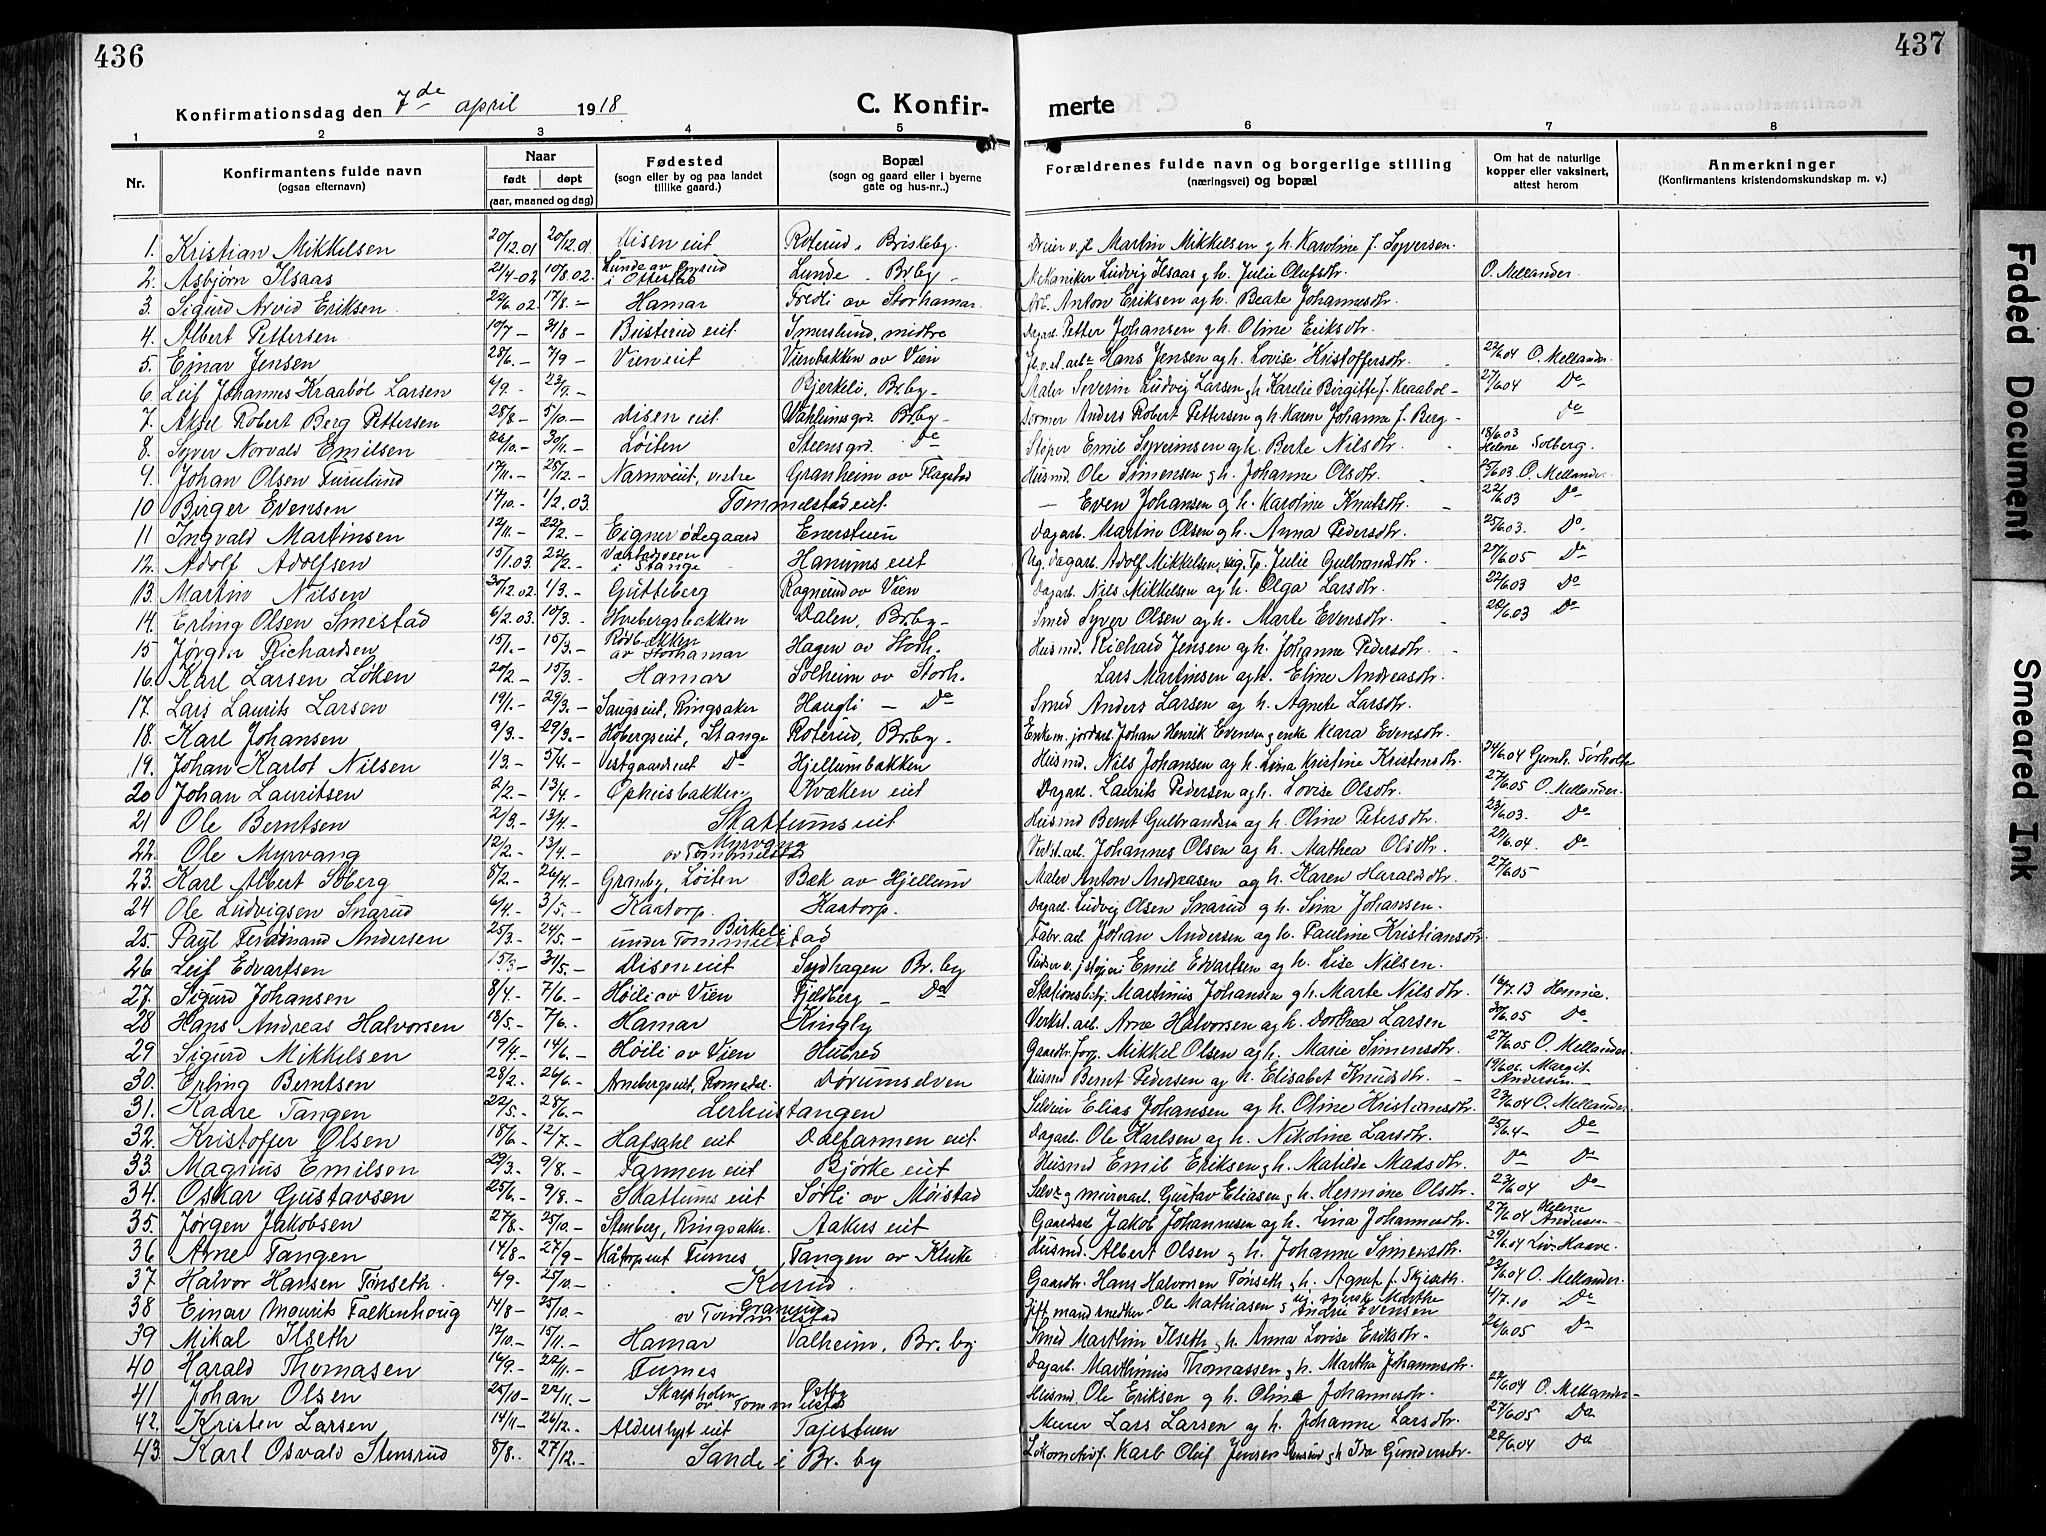 436
437
Konfirmationsdag den 7de april 1918
C. Konfir-
merte
1 2 3 4 5 6 7 8
Nr. Konfirmantens fulde navn (ogsaa efternavn) Naar født døpt (aar, maaned og dag) Fødested (sogn eller by og paa landet tillike gaard.) Bopæl (sogn og gaard eller i byerne gate og hus-nr..) Forældrenes fulde navn og borgerlige stilling (næringsvei) og bopæl Om hat de naturlige kopper eller vaksinert, attest herom Anmerkninger (Konfirmantens kristendomskundskap m. v.)
1. Kristian Mikkelsen 20/12.01 20/12.01 Disen eiet Roterud i Briskeby. Martin Mikkelsen g h. Karoline f. Syversen.
2. Asbjørn Ilsaas 21/4-02 10/8.02. Lunde av i Ottestad Lunde - Brby - Mekaniker Ludvig Ilsaas g h. Julie Olufsdtr. O. Mellander.
3. Sigurd Arvid Eriksen 22/6.02. 17/8.- Hamar Fredli av Storhamar. Arb. Anton Eriksen og h. Beate Johannesdtr.
4. Albert Pettersen 10/7 - 31/8 - Busterud eiet Imerslund, midtre Dagarb. Petter Johansen g h. Oline Eriksdtr.
5. Einar Jensen 28/6.- 7/9 - Vien eiet Vienbakken av Vien Hans Jensen og h. Lovise Kristoffersdtr. 22/6.04 O. Mellander.
6. Leif Johannes Kraabøl Larsen 6/9.- 23/9.- Bjerkeli, Brby- Maler Severin Ludvig Larsen g h Karelie Birgitte f. Kraabøl - 27/6.04 Do
7. Aksel Robert Berg Pettersen 25/8 - 5/10.- Disen eiet Wahlumsgrd. Brby- Former Anders Robert Pettersen g h. Karen Johanne f. Berg - Do
8. Syver Norvald Emilsen 22/10.- 30/11.- Løiten Steensgrd. Do Støper Emil Syvernsen og h. Berte Nilsdtr. 18/6.03 Helene Solberg.
9. Johan Olsen Furulund 17/11.- 25/12.- Narmoeiet, vestre Granheim av Flagstad Husmd. Ole Simensen g h. Johanne Olsdtr. 25/6.03 O. Mellander.
10 Birger Evensen 17/10.- 1/2.03. Tommelstad eiet. - Even Johansen g h. Karoline Knutsdtr. 22/6.03 Do
11 Ingvald Martinsen 12/11.- 22/2.- Eigner ødegaard Enerstuen Dagarb. Martin Olsen g h. Anna Pedersdtr. 25/6.03. Do
12. Adolf Adolfsen 15/1.03. 22/2.- i Stange Hanums eiet Ug. dagarb. Adolf Mikkelsen, ug. Tp. Julie Gulbrandsdtr. 27/6.05 Do
13. Martin Nilsen 30/12.02. 1/3.- Gutteberg Rognerud av Vien Dagarb. Nils Mikkelsen og h. Olga Larsdtr. 22/6.03 Do
14. Erling Olsen Smestad 6/2.03. 10/3.- Hvebergsbakken Dalen, Brby- Smed Syver Olsen og h. Marte Evensdtr. 22/6.03 Do
15 Jørgen Richardsen 15/1.- 15/3.- Rødbækken av Storhamar Hagen av Storh. Husmd. Richard Jensen og h. Johanne Pedersdtr.
16. Karl Larsen Løken 20/2 - 15/3.- Hamar Solheim av Storh. Lars Martinsen og h. Eline Andreasdtr.
17. Lars Laurits Larsen 19/1.- 29/3.- Saugs eiet, Ringsaker Haugli - Do Smed Anders Larsen og h. Agnete Larsdtr.
18. Karl Johansen 9/3.- 29/3.- Hobergseiet, Stange Roterud, Brby- Enkem. jordarb. Johan Henrik Evensen g enke Klara Evensdtr.
19. Johan Karlot Nilsen 1/3.- 5/4.- Vestgaardseiet Do Hjellumbakken Husmd. Nils Johansen og h. Lina Kristine Kristensdtr. 24/6.04 Gunh. Sørholte
20 Johan Lauritsen 2/2.- 13/4.- Opheisbakken Kvæken eiet Dagarb. Laurits Pedersen og h. Lovise Olsdtr. 27/6.05 O. Mellander.
21 Ole Berntsen 2/3.- 13/4.- Skattums eiet Husmd Bernt Gulbrandsen og h. Oline Petersdtr. 23/6.03. Do
22. Ole Myrvang 12/2.- 13/4.- Myrvang av Tommelstad Verkst.arb. Johannes Olsen og h. Mathea Olsdtr. 29/6.04. Do
23. Karl Albert Soberg 8/2.- 26/4.- Granby, Løiten Bæk av Hjellum Maler Anton Andreasen og h. Karen Haraldsdtr. 27/6.05
24 Ole Ludvigsen Snarud 6/4.- 3/5.- Kaatorp. Kaatorp. Dagarb. Ludvig Olsen Snarud g h. Sina Johansen.
25. Paul Ferdinand Andersen 25/3.- 24/5.- Birkeli under Tommelstad Fabr. arb. Johan Andersen og h. Pauline Kristiansdtr.
26 Leif Edvartsen 15/3 - 31/5.- Disen eiet Sydhagen Br. by Emil Edvartsen og h. Lise Nilsen.
27. Sigurd Johansen 8/4.- 7/6.- Høili av Vien Fjeldberg - Do Stationsbetj. Martinius Johansen g h. Marte Nilsdtr. 16/7.13 Hennie.
28 Hans Andreas Halvorsen 18/5.- 7/6. Hamar Kingly Verkst. arb. Arne Halvorsen og h. Dorthea Larsen 30/6.05 Do
29 Sigurd Mikkelsen 19/4.- 14/6.- Høili av Vien Hubred Gaardbr.forp. Mikkel Olsen og h. Marie Simensdtr. 27/6.05 O. Mellander.
30. Erling Berntsen 28/2.- 26/6.- Arnebergseiet, Romedal. Dørumselven Husmd Bernt Pedersen og h. Elisabet Knudsdtr. 19/6.06. Margit Andersen -
31. Kaare Tangen 22/5.- 28/6.- Lerhustangen Selveier Elias Johansen og h. Oline Kristiansdtr. 23/6.04 O. Mellander.
32. Kristoffer Olsen 18/6 - 12/7.- Hafsahl eiet Dalfarmen eiet Dagarb. Ole Karlsen og h. Nikoline Larsdtr. 25/6.4- Do
33. Magnus Emilsen 29/3.- 9/8.- Farmen eiet Bjørke eiet Husmd Emil Eriksen g h. Matilde Madsdtr. Do Do
34. Oskar Gustavsen 25/6.- 9/8.- Skattums eiet Sørli av Møistad Selve. g murerarb. Gustav Eliasen g h. Hermine Olsdtr. 23/6.04 Do
35. Jørgen Jakobsen 27/8.- 25/10.- Stenberg, Ringsaker. Aakers eiet Gaardsarb Jakob Johannesen og h. Lina Johannesdtr. 27/6.04 Helene Andersen-
36 Arne Tangen 14/8- 27/9- Kåtorpeiet Furnes Tangen av Kluke Husmd. Albert Olsen g h. Johanne Simensdtr. 29/6.04 Liv. Haave.
37 Halvor Hansen Tønseth. 6/9. 25/10- Kurud. Gaardbr. Hans Halvorsen Tønseth g h. Agnete f. Skjeseth. 22/6.04 O. Mellander.
38 Einar Maurits Falkenhoug 14/8- 25/10.- Granerud av Tommelstad Gift mand snedker Ole Mathiasen g ug. svenske Marthe Andrie Evensen 4/7.10 Do
39 Mikal Ilseth 12/10.- 15/11.- Hamar Valheim, Br. by Smed Marthin Ilseth g h. Anna Lovise Eriksdtr. 26/6.05 Do
40 Harald Thomasen 14/9.- 22/11.- Furnes Dagarb. Marthinius Thomassen g h. Martha Johannesdtr.
41 Johan Olsen 25/10- 22/11.- Skarpholen av Tommelstad Husmd. Ole Eriksen g h. Oline Johannesdtr. 24/6.04 O. Mellander-
42. Kristen Larsen 14/11- 26/12.- Alderslyst eiet Tajestuen Murer Lars Larsen og h. Johanne Larsdtr. 27/6.05 Do
43. Karl Osvald Stensrud 8/8.. 27/12.- Sande i Br. by Lokomotivf. Karl Oluf Jensen Stensrud g h Ida Gundersdtr. 22/6.04 Do
Faded Document
Smeared Ink